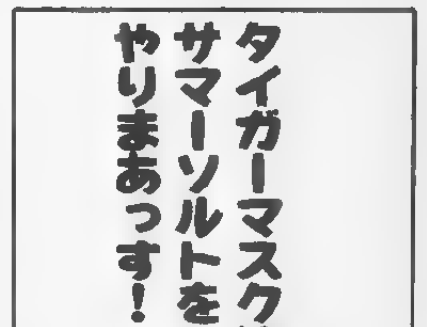 タイガーマスク
サマーソルトを
やりまあっす!